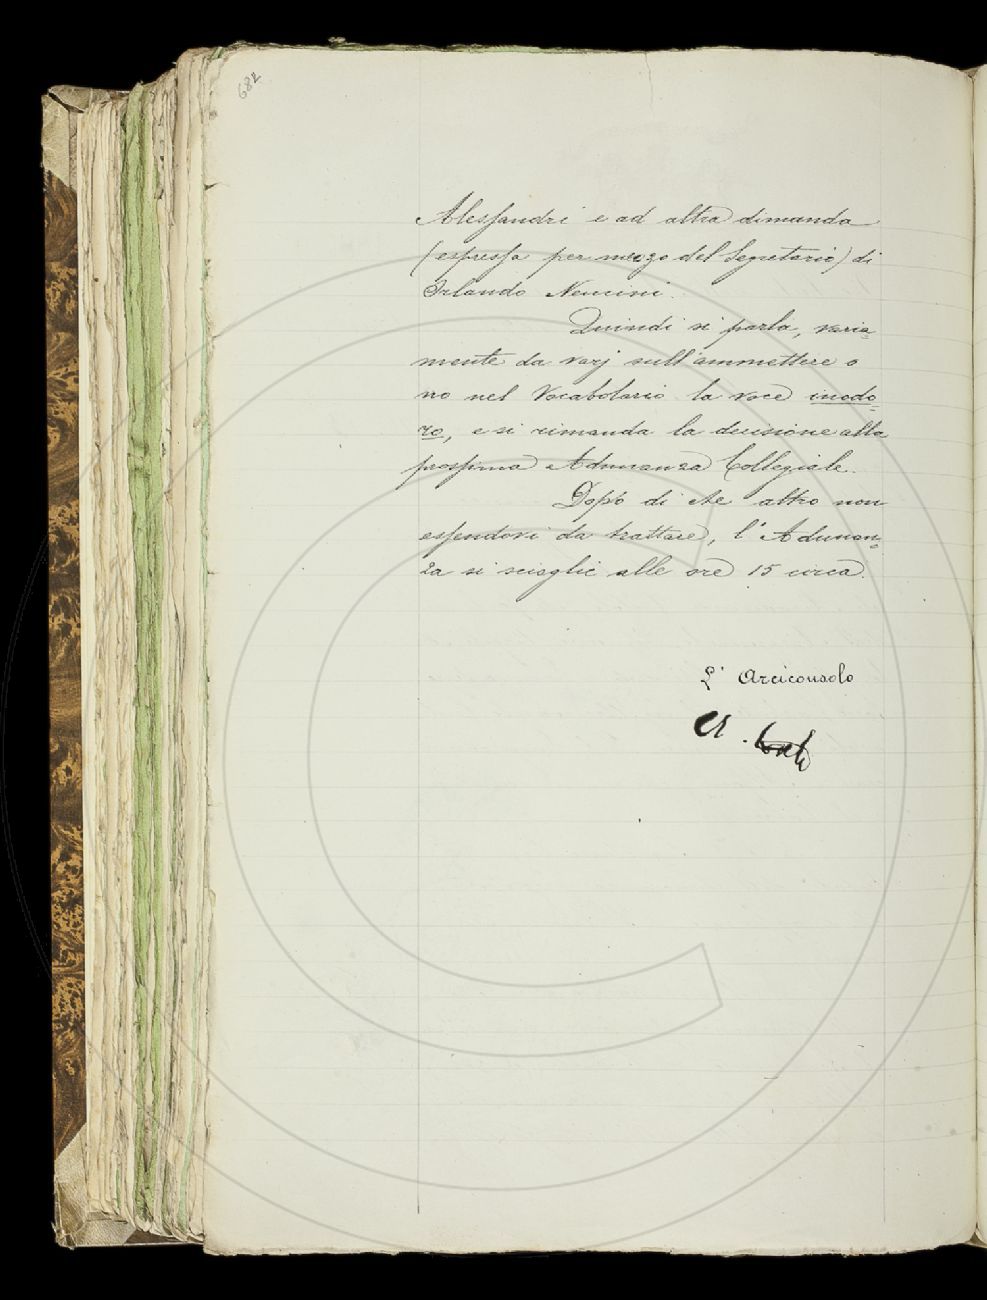 682
Alessandri e ad altra dimanda
(espressa per mezzo del Segretario) di
Orlando Nencini.
Quindi si parla, varia=
mente da varj sull'ammettere o
no nel Vocabolario la voce inodo=
ro, e si rimanda la decisione alla
prossima Adunanza Collegiale.
Dopo di che altro non
essendovi da trattare, l'Adunan=
za si scioglie alle ore 15 circa.
L'Arciconsolo
A. Conti